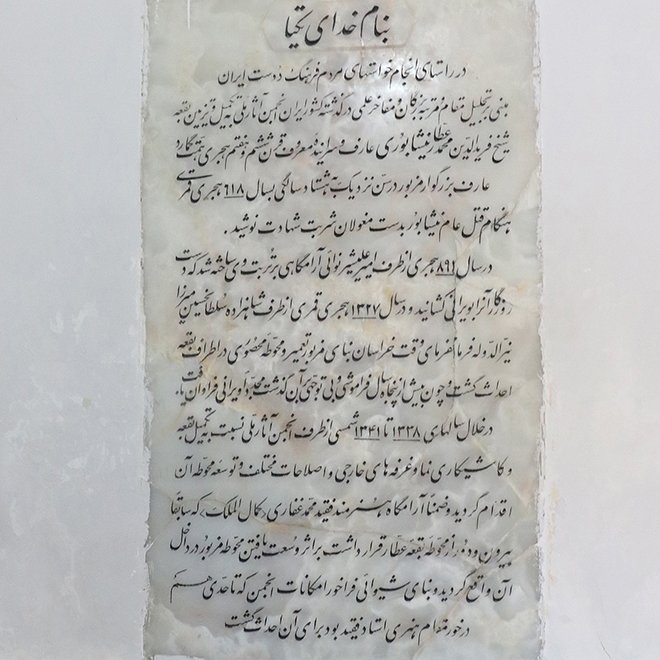 بنام خدای یکتا
در راستای انجام خواستهای مردم فرهنگ دوست ایران
مبنی بر تجلیل مقام و مرتبه بزرگان و مفاخر علمی درگذشته کشور ایران انجمن آثار ملی به تکمیل و تزیین بقعه
شیخ فریدالدین محمد عطار نیشابوری عارف و سراینده معروف قرن ششم و هفتم هجری همت گمارد
عارف بزرگوار مزبور در سن نزدیک به هشتاد سالگی بسال ٦١٨ هجری قمری
هنگام قتل عام نیشابور بدست مغولان شربت شهادت نوشید .
در سال ٨٩١ هجری از طرف امیر علیشیر نوائی آرامگاهی بر تربت وی ساخته شد که دست
روزگار آنرا بویرانی کشانید و در سال ١٣٢٧ هجری قمری از طرف شاهزاده سلطانحسین میرزا
نیرالدوله فرمانفرمای وقت خراسان بنای مزبور تعمیر و محوطه محصوری در اطراف بقعه
احداث گشت و چون بیش از پنجاه سال فراموشی و بی توجهی بر آن گذشت مجدداً ویرانی فراوان یافت
در خلال سالهای ١٣٣٨ تا ١٣٤١ شمسی از طرف انجمن آثار ملی نسبت به تکمیل بقعه
و کاشیکاری نما و غرفه های خارجی و اصلاحات مختلف و توسعه محوطه آن
اقدام گردید و ضمناً آرامگاه هنرمند فقید محمد غفاری (کمال الملک) که سابقاً
بیرون و دور از محوطه بقعه عطار قرار داشت بر اثر وسعت یافتن محوطه مزبور در داخل
آن واقع گردید و بنای شیوائی فراخور امکانات انجمن که تا حدی هم
درخور مقام هنری استاد فقید بود برای آن احداث گشت